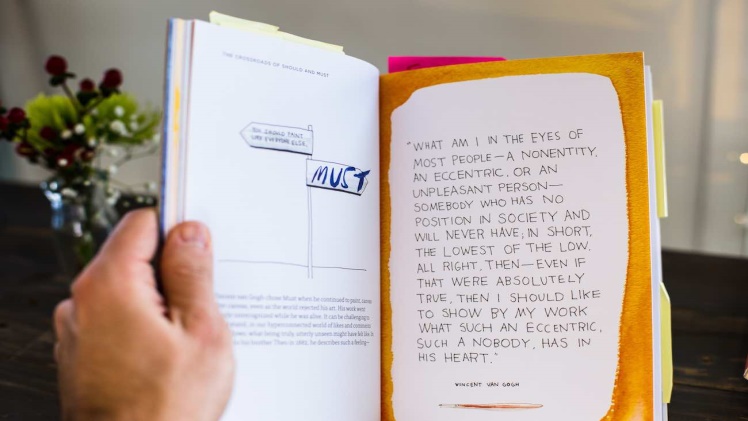 THE CROSSROADS OF SHOULD AND MUST
YOU SHOULD PAINT
LIKE EVERYONE ELSE.
MUST
Vincent van Gogh chose Must when he continued to paint, canvas
after canvas, even as the world rejected his art. His work went
unappreciated while he was alive. It can be challenging
in our hyperconnected world of likes and comments
what being truly, utterly unseen might have felt like
his brother Theo in 1882, he describes such a feeling—
"WHAT AM I IN THE EYES OF
MOST PEOPLE—A NONENTITY,
AN ECCENTRIC, OR AN
UNPLEASANT PERSON—
SOMEBODY WHO HAS NO
POSITION IN SOCIETY AND
WILL NEVER HAVE; IN SHORT,
THE LOWEST OF THE LOW.
ALL RIGHT, THEN—EVEN IF
THAT WERE ABSOLUTELY
TRUE, THEN I SHOULD LIKE
TO SHOW BY MY WORK
WHAT SUCH AN ECCENTRIC,
SUCH A NOBODY, HAS IN
HIS HEART."
VINCENT VAN GOGH